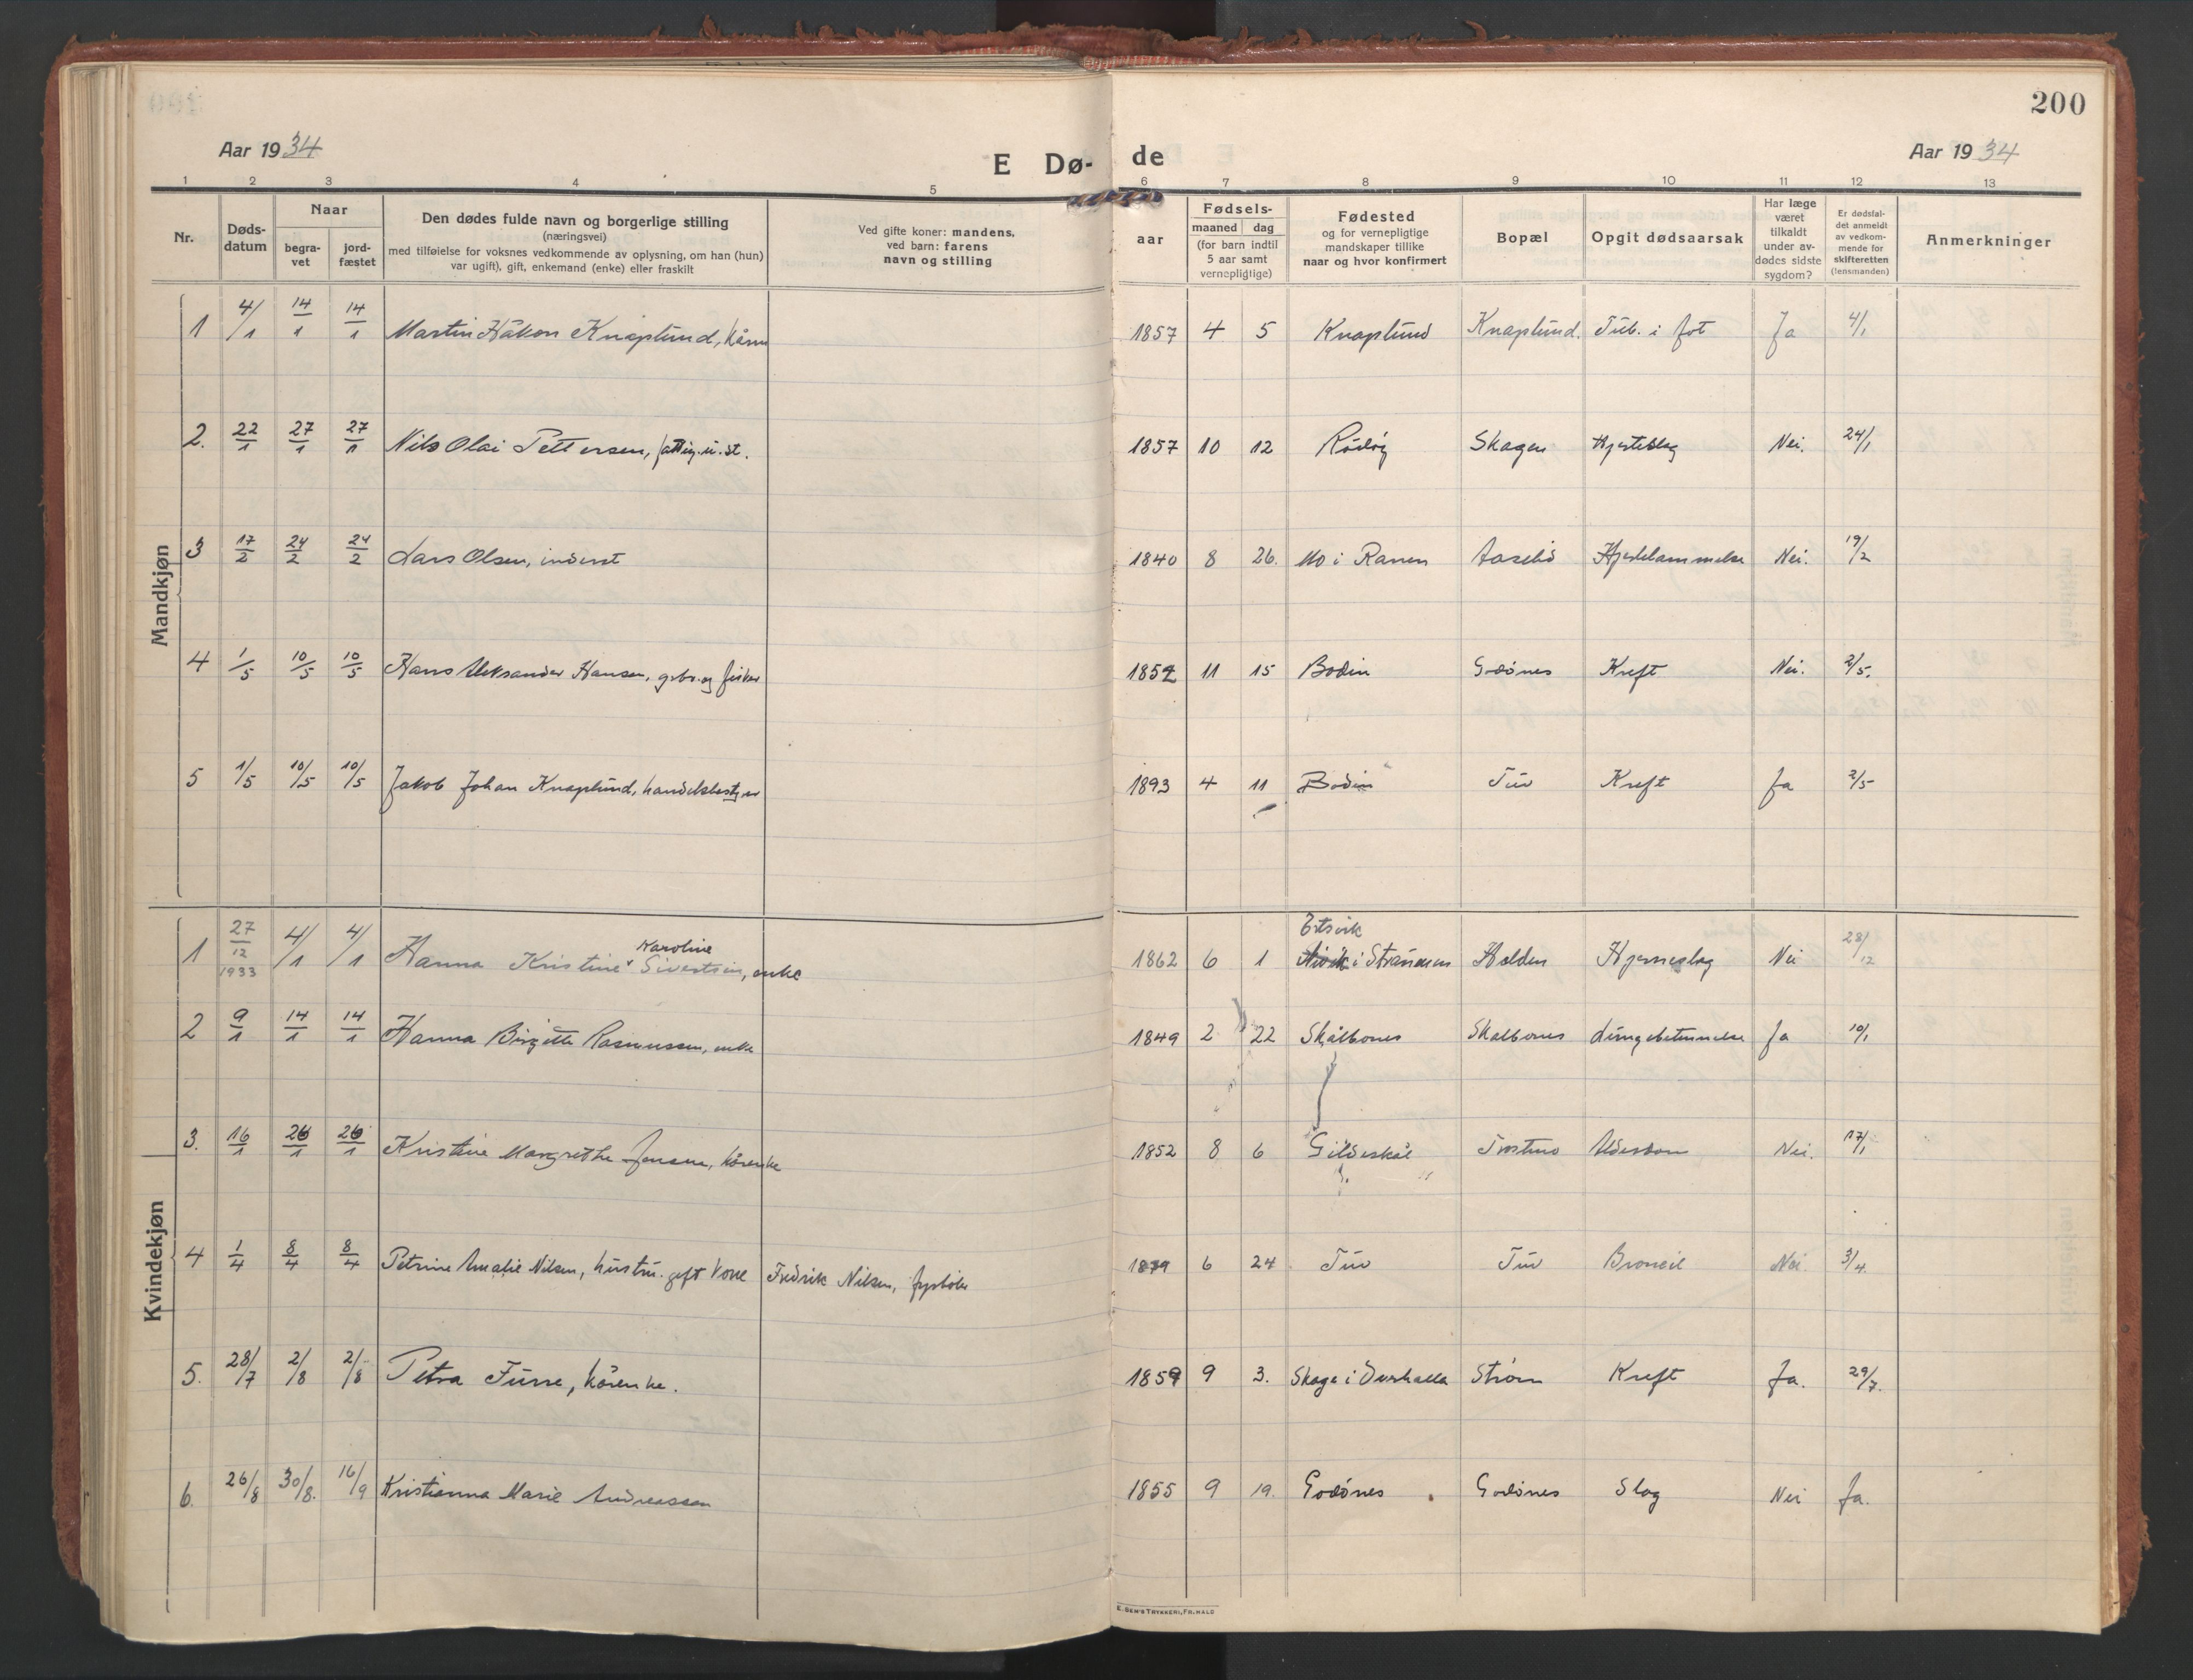 200
Aar 1934
E Dø-
de
Aar 1934
1 2 3 4 5 6 7 8 9 10 11 12 13
Nr.
Døds-
datum
Naar
begra-
vet
jord-
fæstet
Den dødes fulde navn og borgerlige stilling
(næringsvei)
med tilføielse for voksnes vedkommende av oplysning, om han (hun)
var ugift), gift, enkemand (enke) eller fraskilt
Ved gifte koner: mandens,
ved barn: farens
navn og stilling
aar
Fødsels-
maaned dag
(for barn indtil
5 aar samt
vernepligtige)
Fødested
og for vernepligtige
mandskaper tillike
naar og hvor konfirmert
Bopæl
Opgit dødsaarsak
Har læge
været
tilkaldt
under av-
dødes sidste
sygdom?
Er dødsfal-
det anmeldt
av vedkom-
mende for
skifteretten
(lensmanden)
Anmerkninger
Mandkjøn
1 4/1 14/1 14/1 Martin Håkon Knaplund, kårm 1857 4 5 Knaplund Knaplund. Tub. i fot Ja 4/1
2. 22/1 27/1 27/1 Nils Olai Pettersen, fattig.u.st. 1857 10 12 Rødøy Skagen Hjerteslag Nei. 24/1
3 17/2 24/2 24/2 Lars Olsen, inderst 1840 8 26. Mo i Ranen Aaseli Hjertelammelse Nei. 19/2
4 1/5 10/5 10/5 Hans Aleksander Hansen, grbr. og fisker 1852 11 15 Bodin Godønes Kreft Nei. 2/5.
5 1/5 10/5 10/5 Jakob Johan Knaplund, handelsbestyrer 1893 4 11 Bodin Tuv Kreft Ja 2/5
Kvindekjøn
Karoline
Ertsvik
1 27/12 1933 4/1 4/1 Hanna Kristine ˅ Sivertsen, enke 1862 6 1 i Stranden Halden Hjerneslag Nei 28/12
2 9/1 14/1 14/1 Hanna Birgitte Rasmussen, enke 1849 2 22 Skålbones Skålbones Lungebetennelse Ja 10/1
3. 16/1 26/1 26/1 Kristine Margrethe Jensen, kårenke 1852 8 6 Gildeskål Tvertno Alderdom Nei. 17/1
4 1/4 8/4 8/4 Petrine Amalie Nilsen, hustru. gift Fredrik Nilsen, fyrbøter 1879 6 24 Tuv Tuv Nei 3/4.
5. 28/7 2/8 2/8 Petra Furre, kårenke. 1859 9 3. Skage i Overhalla Strøm Kreft Ja. 29/7.
6. 26/8 30/8. 16/9 Kristianna Marie Andreassen 1855 9 19. Godønes Godønes Slag Nei Ja.
E. SEM'S TRYKKERI, FR.HALD